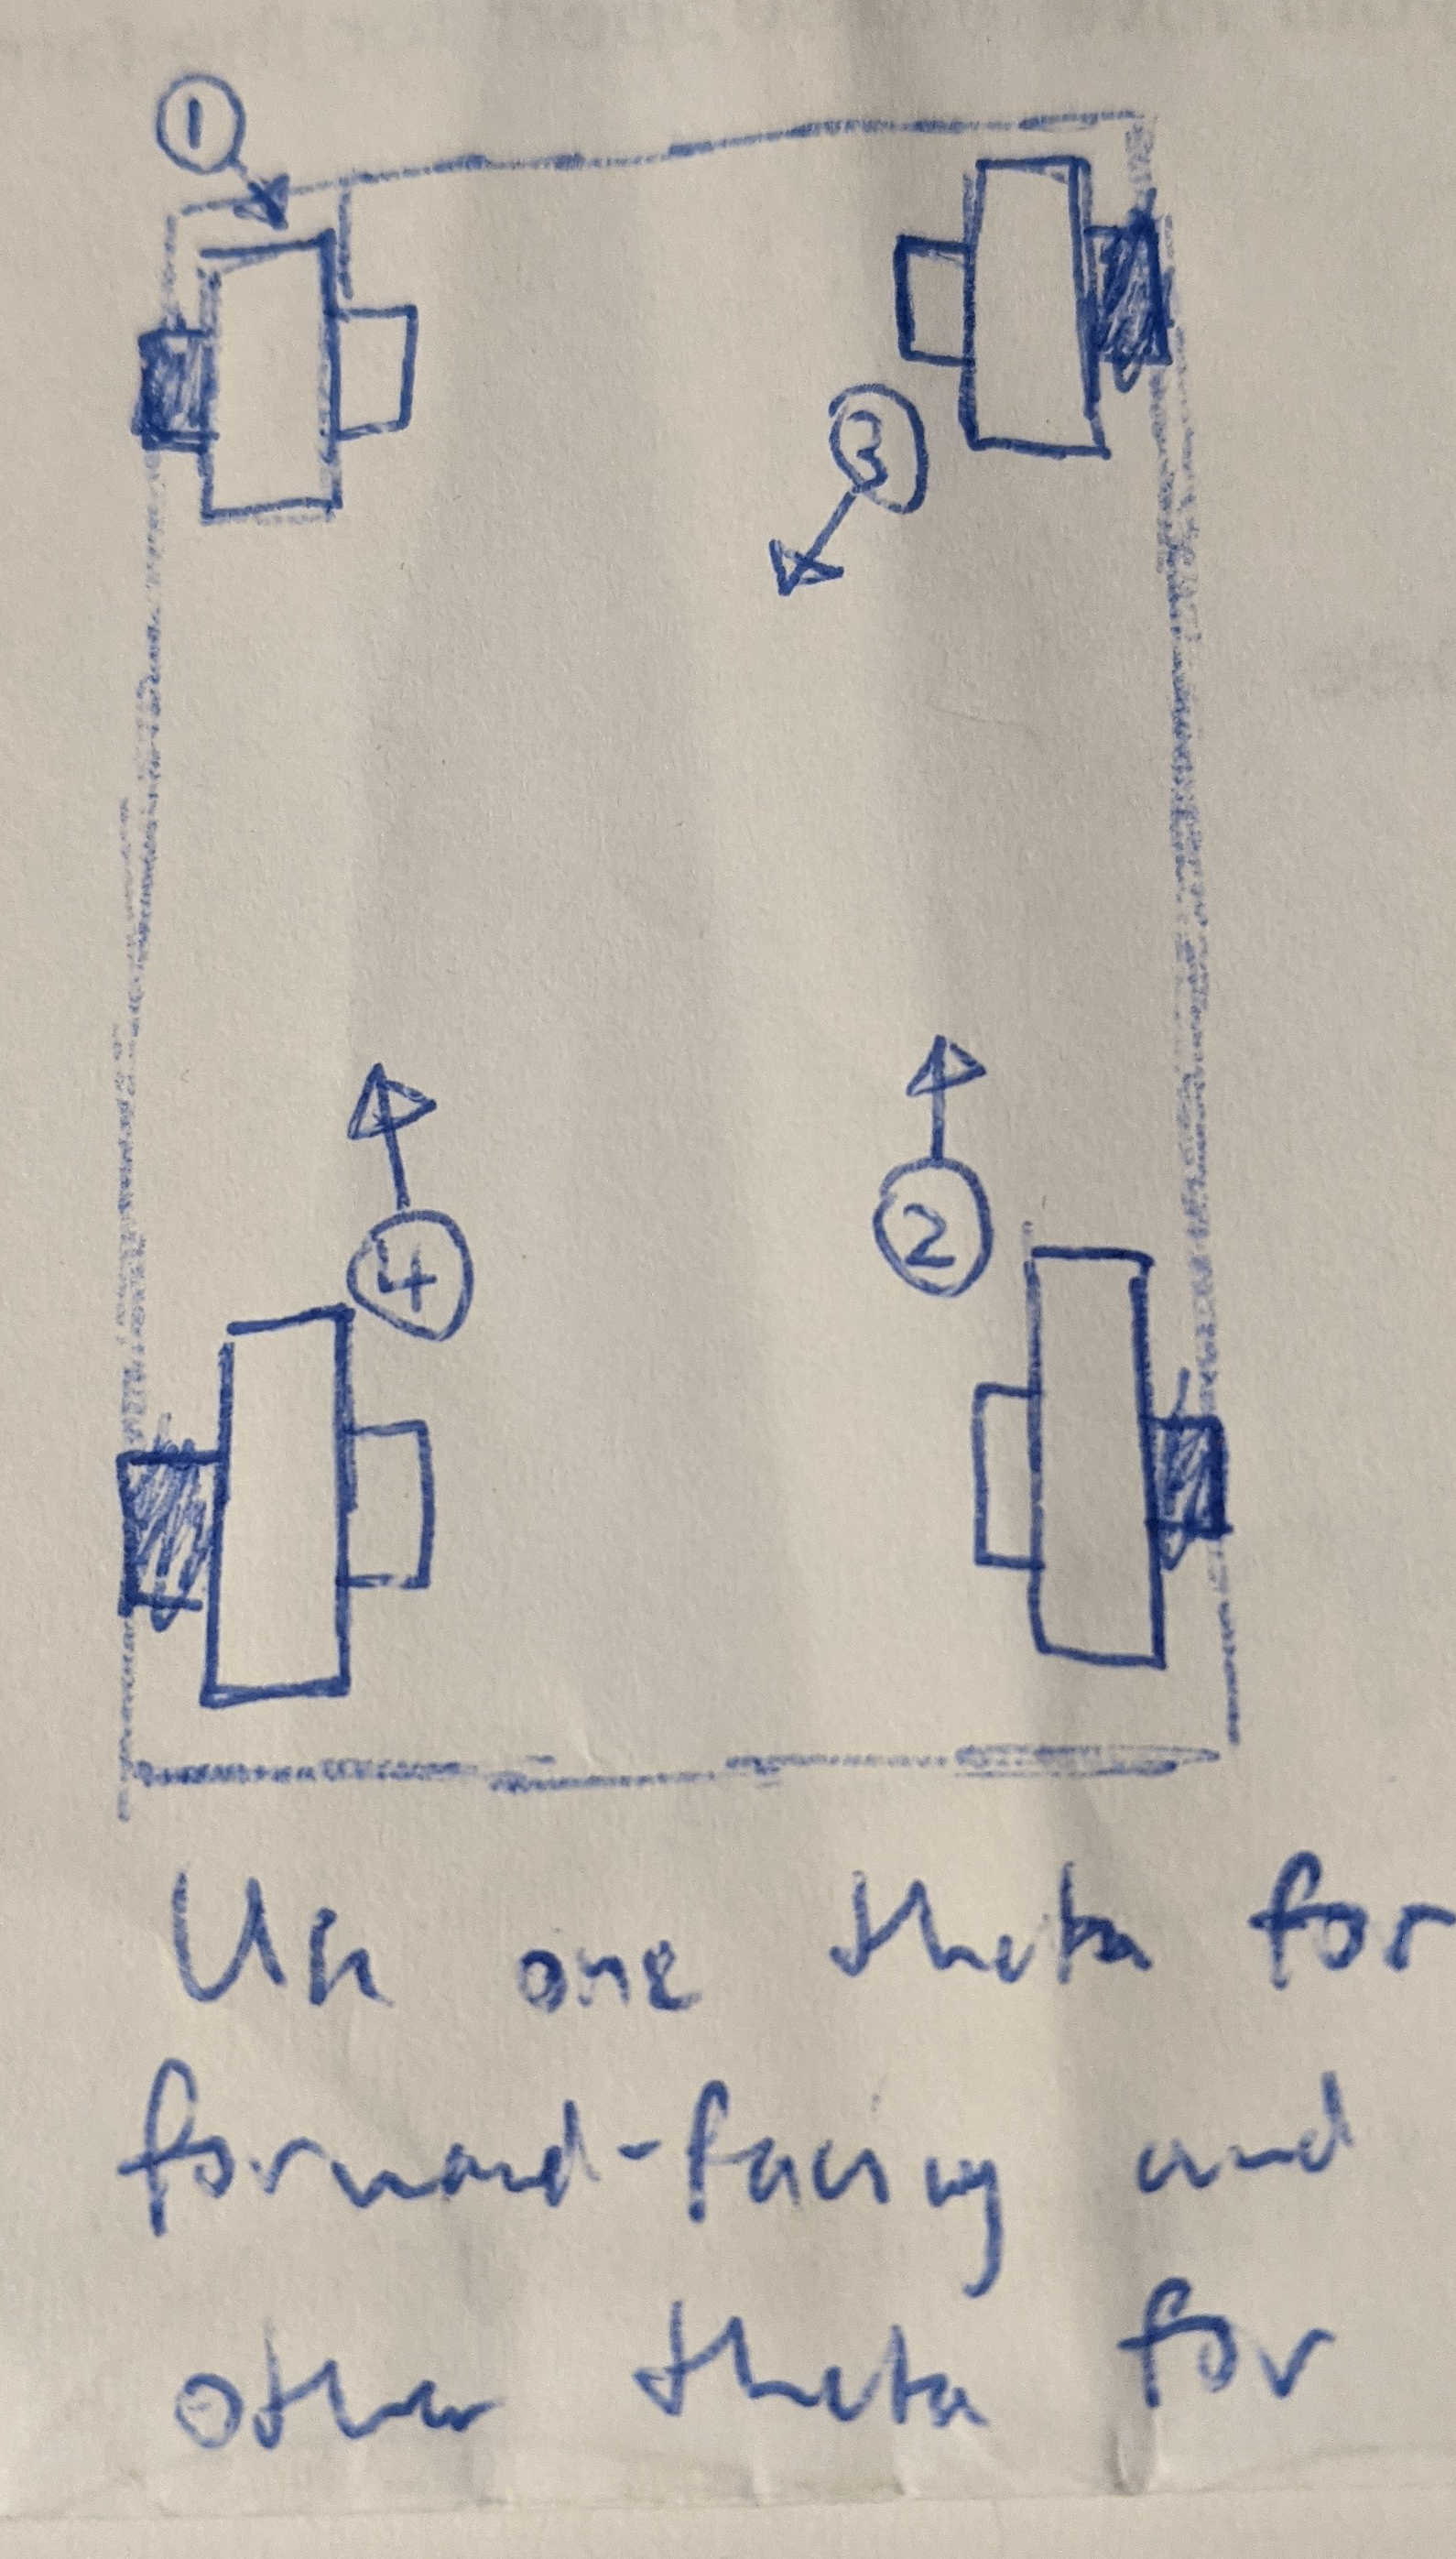 1
3
4
2
Use one theta for
forward-facing and
other theta for